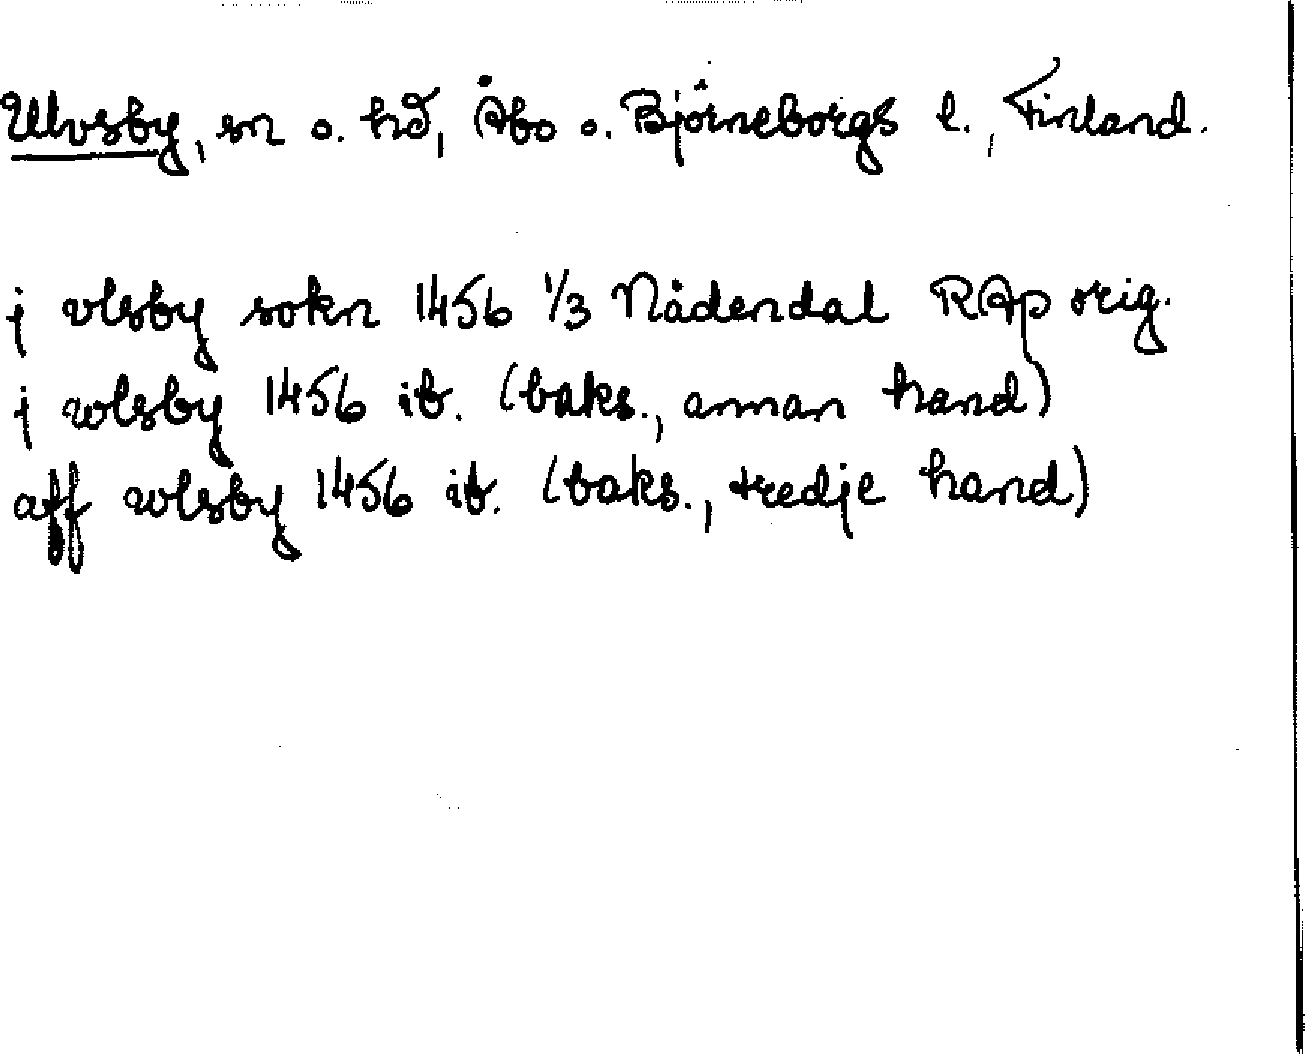 Ulvsby, sn o. hd, Åbo o. Björneborgs l., Finland.
j vlsby sokn 1456 1/3 Nådendal RAp orig.
j wlsby 1456 ib. (baks., annan hand)
aff wlsby 1456 ib. (baks., tredje hand)